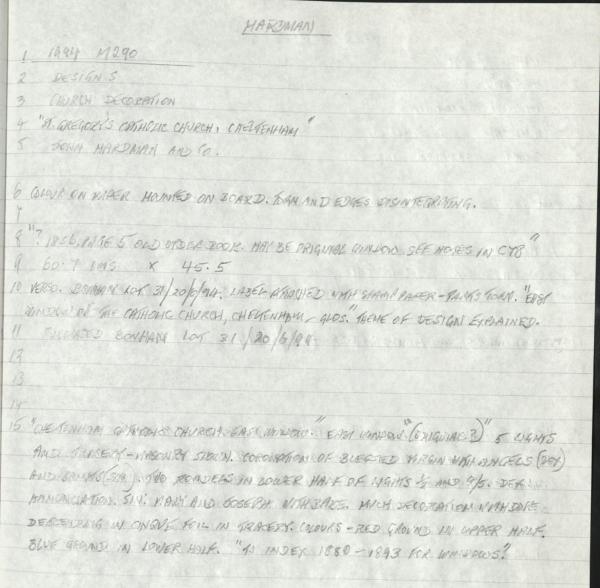 HARDMAN
1 1994 M290
2 DESIGNS
3 CHURCH DECORATION
4 "ST. GREGORY'S CATHOLIC CHURCH, CHELTENHAM"
5 JOHN HARDMAN AND CO.
6 COLOUR ON PAPER MOUNTED ON BOARD. TORN AND EDGES DISINTEGRATING.
7
8 "? 1856, PAGE 5 OLD ORDER BOOK. MAY BE ORIGINAL WINDOW SEE NOTES IN
9 60.7 CMS X 45.5
10 VERSO. BONHAM LOT 31/20/6/94. LABEL ATTACHED WITH PAPER - PARTS TORN. "EAST
WINDOW OF THE CATHOLIC CHURCH, CHELTENHAM, GLOS." THEME OF DESIGN EXPLAINED.
11 BONHAM LOT 31/20/6/94
12
13
14
15 "CHELTENHAM CATHOLIC CHURCH EAST WINDOW." EAST WINDOW "(ORIGINAL?)" 5 LIGHTS
AND TRACERY - MASONRY SHOWN. CORONATION OF BLESSED VIRGIN WITH ANGELS
AND SAINTS TWO ROUNDELS IN LOWER HALF OF LIGHTS AND
ANNUNCIATION. MARY AND JOSEPH WITH MUCH DECORATION WITH DOVE
DESCENDING IN FOIL IN TRACERY. COLOURS - RED GROUND IN UPPER HALF.
BLUE GROUND IN LOWER HALF. INDEX 1880 - 1893 FOR WINDOWS?